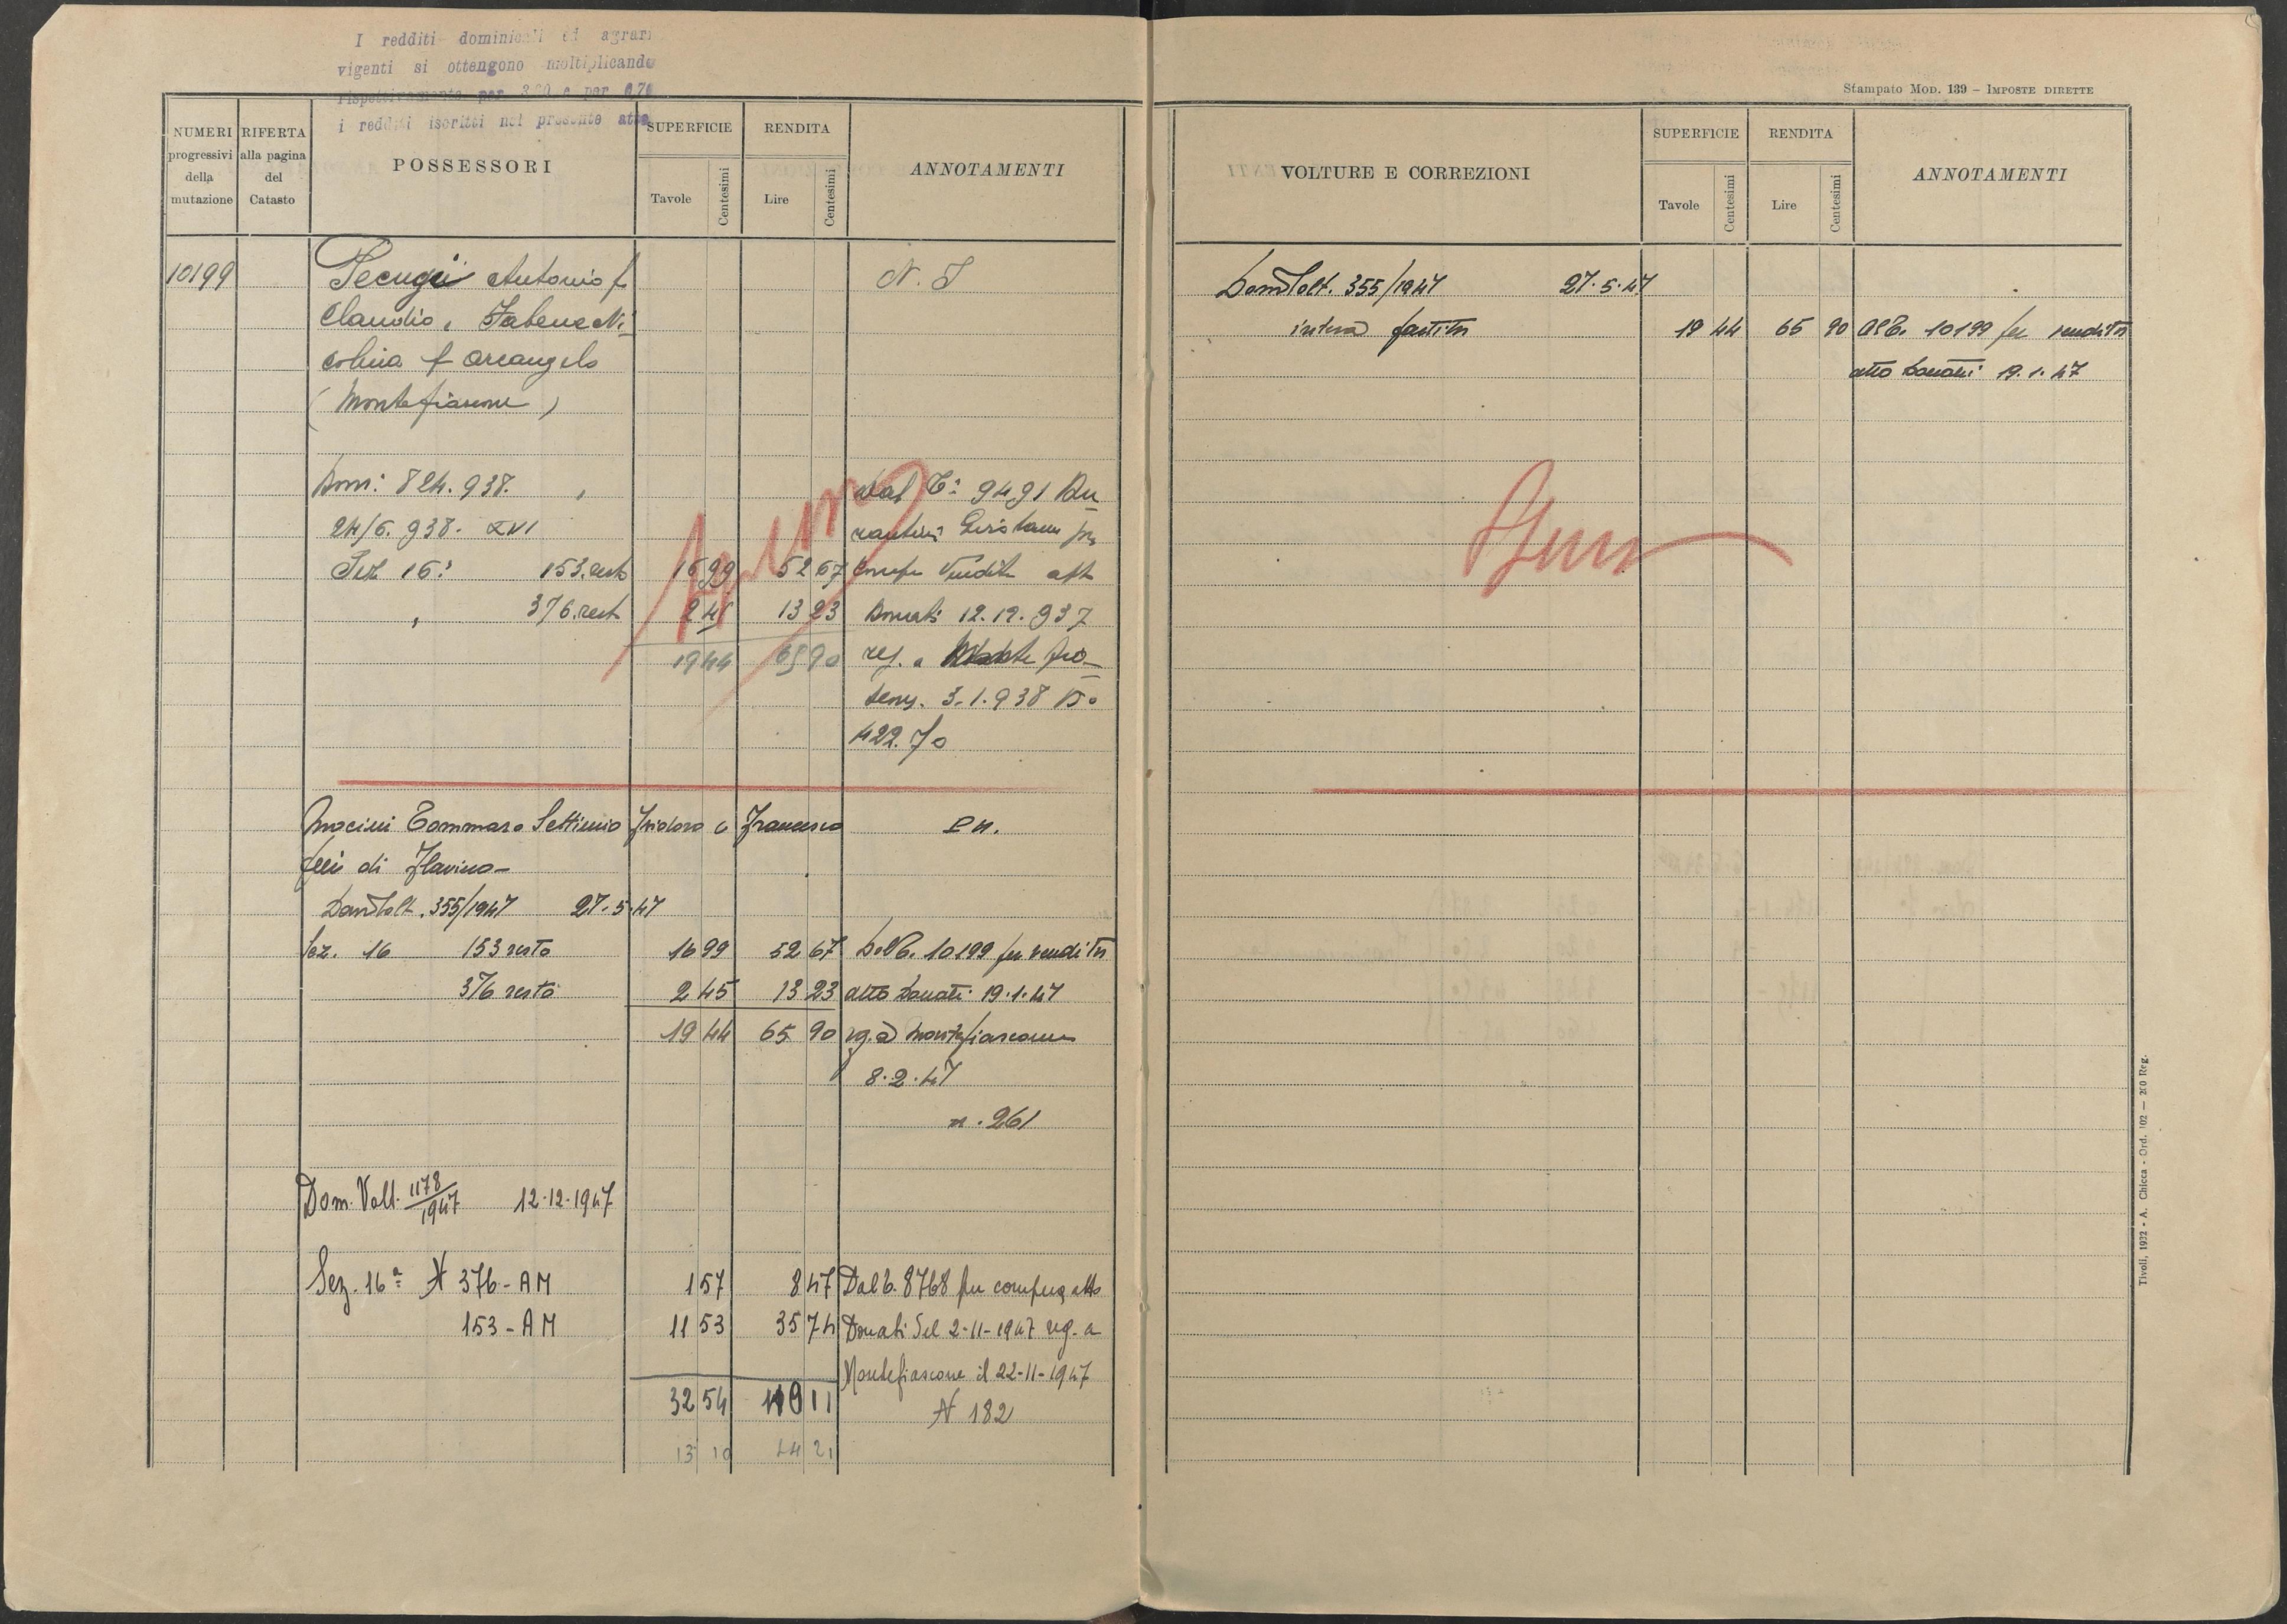 I redditi dominicali ed agrari
vigenti si ottengono moltiplicando
rispettivamente per 3.20 e per 0,70
i redditi iscritti nel presente atto
Stampato Mod. 139 – Imposte dirette
NUMERI progressivi della mutazione
RIFERTA alla pagina del Catasto
POSSESSORI
SUPERFICIE
Tavole Centesimi
RENDITA
Lire Centesimi
ANNOTAMENTI
VOLTURE E CORREZIONI
SUPERFICIE
Tavole Centesimi
RENDITA
Lire Centesimi
ANNOTAMENTI
10199 Antonio f
Claudio e Ni
colina f Arcangelo
(Montefiascone)
824.938.
24/6.938. XVI
Sez 16ª 153.resto 16 99 52 67
" 376.resto 2 45 13 23
19 44 65 90
Dal 9491 Du
rantini
Vendita atto
Donati 12.12.937
reg. a
3.1.938
422.70
Tommaso Settimio Isidoro e Francesco
f.lli di Flavino
355/1947 27.5.47
Sez. 16 153 resto 16 99 52 67 10199 per vendita
376 resto 2 45 13 23 atto Donati 19.1.47
19 44 65 90 rg. a Montefiascone
8.2.47
n. 261
Dom. Volt. 1178/1947 12-12-1947
Sez. 16ª N 376-AM 1 57 8 47 Dal 8768 per atto
153-AM 11 53 35 74 Donati del 2-11-1947 reg. a
Montefiascone il 22-11-1947
32 54 11 N 182
13 10 44 21
355/1947 27.5.47
intera partita 19 44 65 90 10199 per vendita
atto Donati 19.1.47
Tivoli, 1932 - A. Chicca - Ord. 102 — 200 Reg.